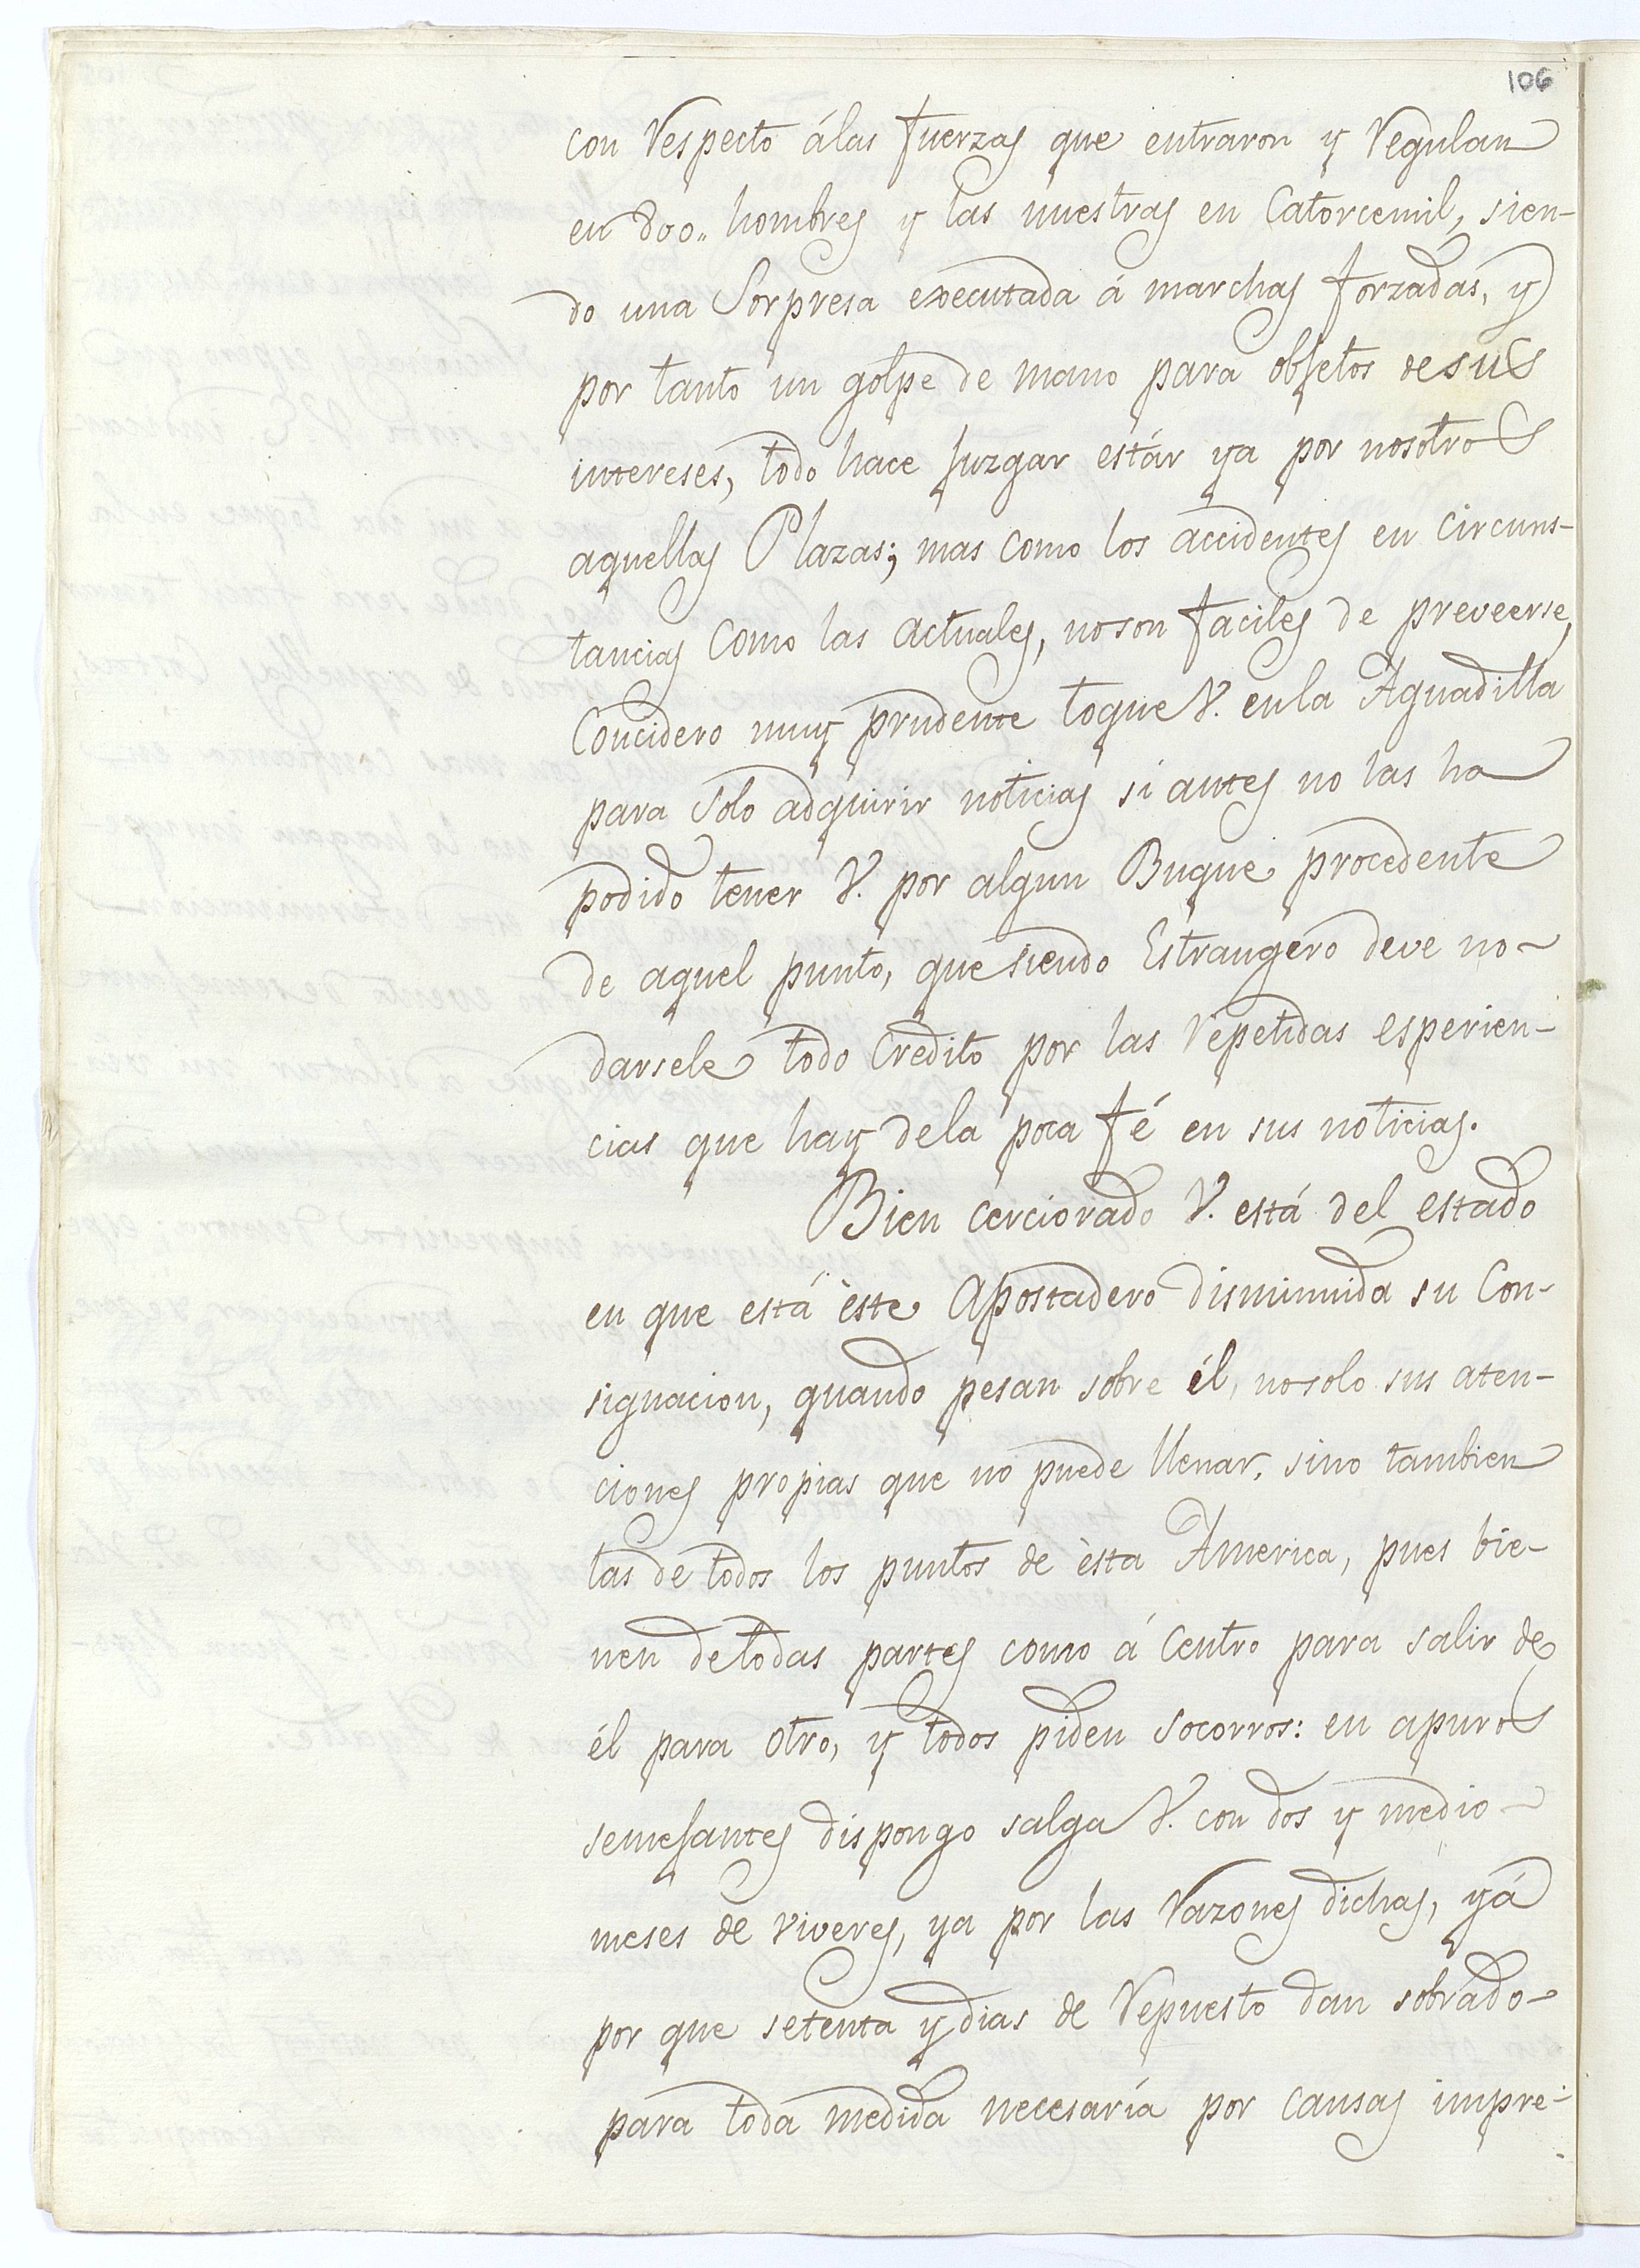 106
con respecto álas fuerzas que entraron y regulan
en 800,, hombres y las nuestras en Catorcemil, sien-
do una Sorpresa executada á marchas forzadas, y
por tanto un golpe de mano para objetos de sus
intereses, todo hace juzgar estár ya por nosotros
aquellas Plazas; mas como los accidentes en circuns-
tancias como las actuales, no son faciles de preveerse,
Concidero muy prudente toque V. en la Aguadilla
para solo adquirir noticias si antes no las ha
podido tener V. por algun Buque procedente
de aquel punto, que siendo Estrangero deve no-
darsele todo Credito por las repetidas esperien-
cias que hay dela poca fé en sus noticias.
Bien cerciorado V. está del estado
en que está èste Apostadero disminuida su Con-
signacion, quando pesan sobre él, no solo sus aten-
ciones propias que no puede llenar, sino tambien
las de todos los puntos de èsta America, pues bie-
nen detodas partes como á Centro para salir de
él para otro, y todos piden socorros: en apuros
semejantes dispongo salga V. con dos y medio-
meses de viveres, ya por las razones dichas, yá
por que setenta y dias de repuesto dan sobrado-
para toda medida necesaria por causas impre-